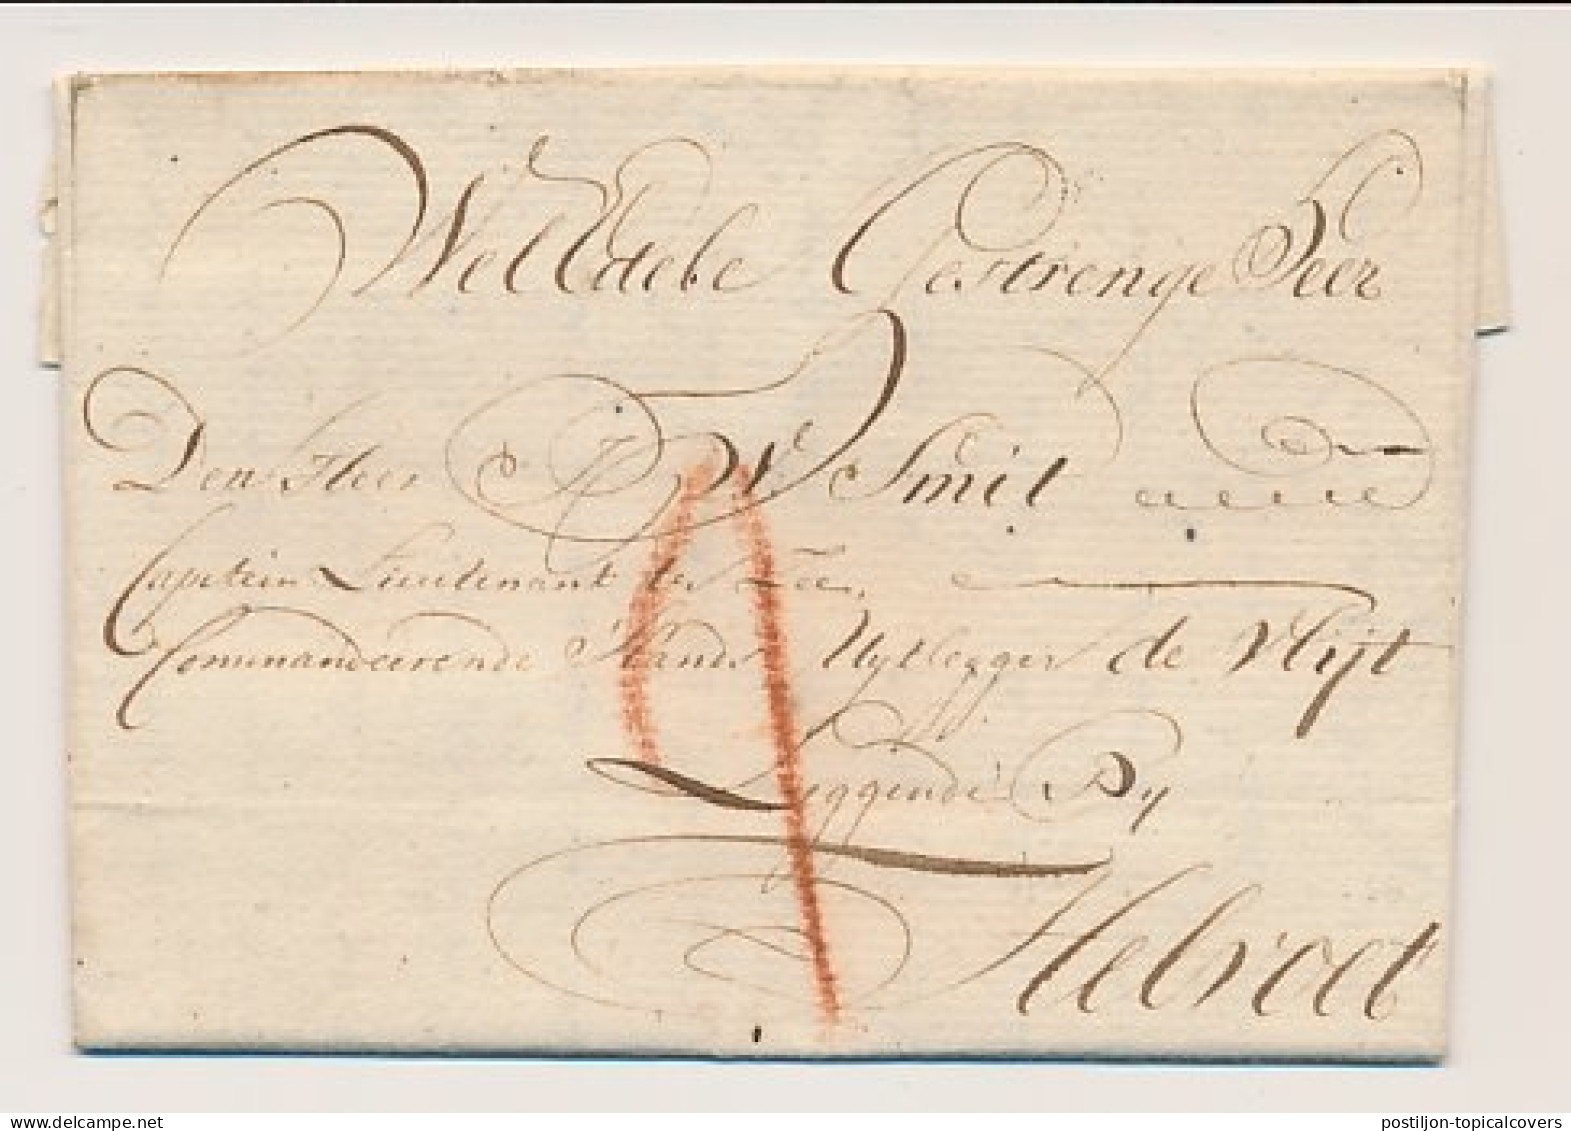 Wel Edele Gestrenge Heer
Den Heer W Smit
Capitein Lieutenant ter Zee
Commandeerende s'Lands Uytlegger de Vlijt
Leggende By
Helvoet
postiljon-topicalcovers